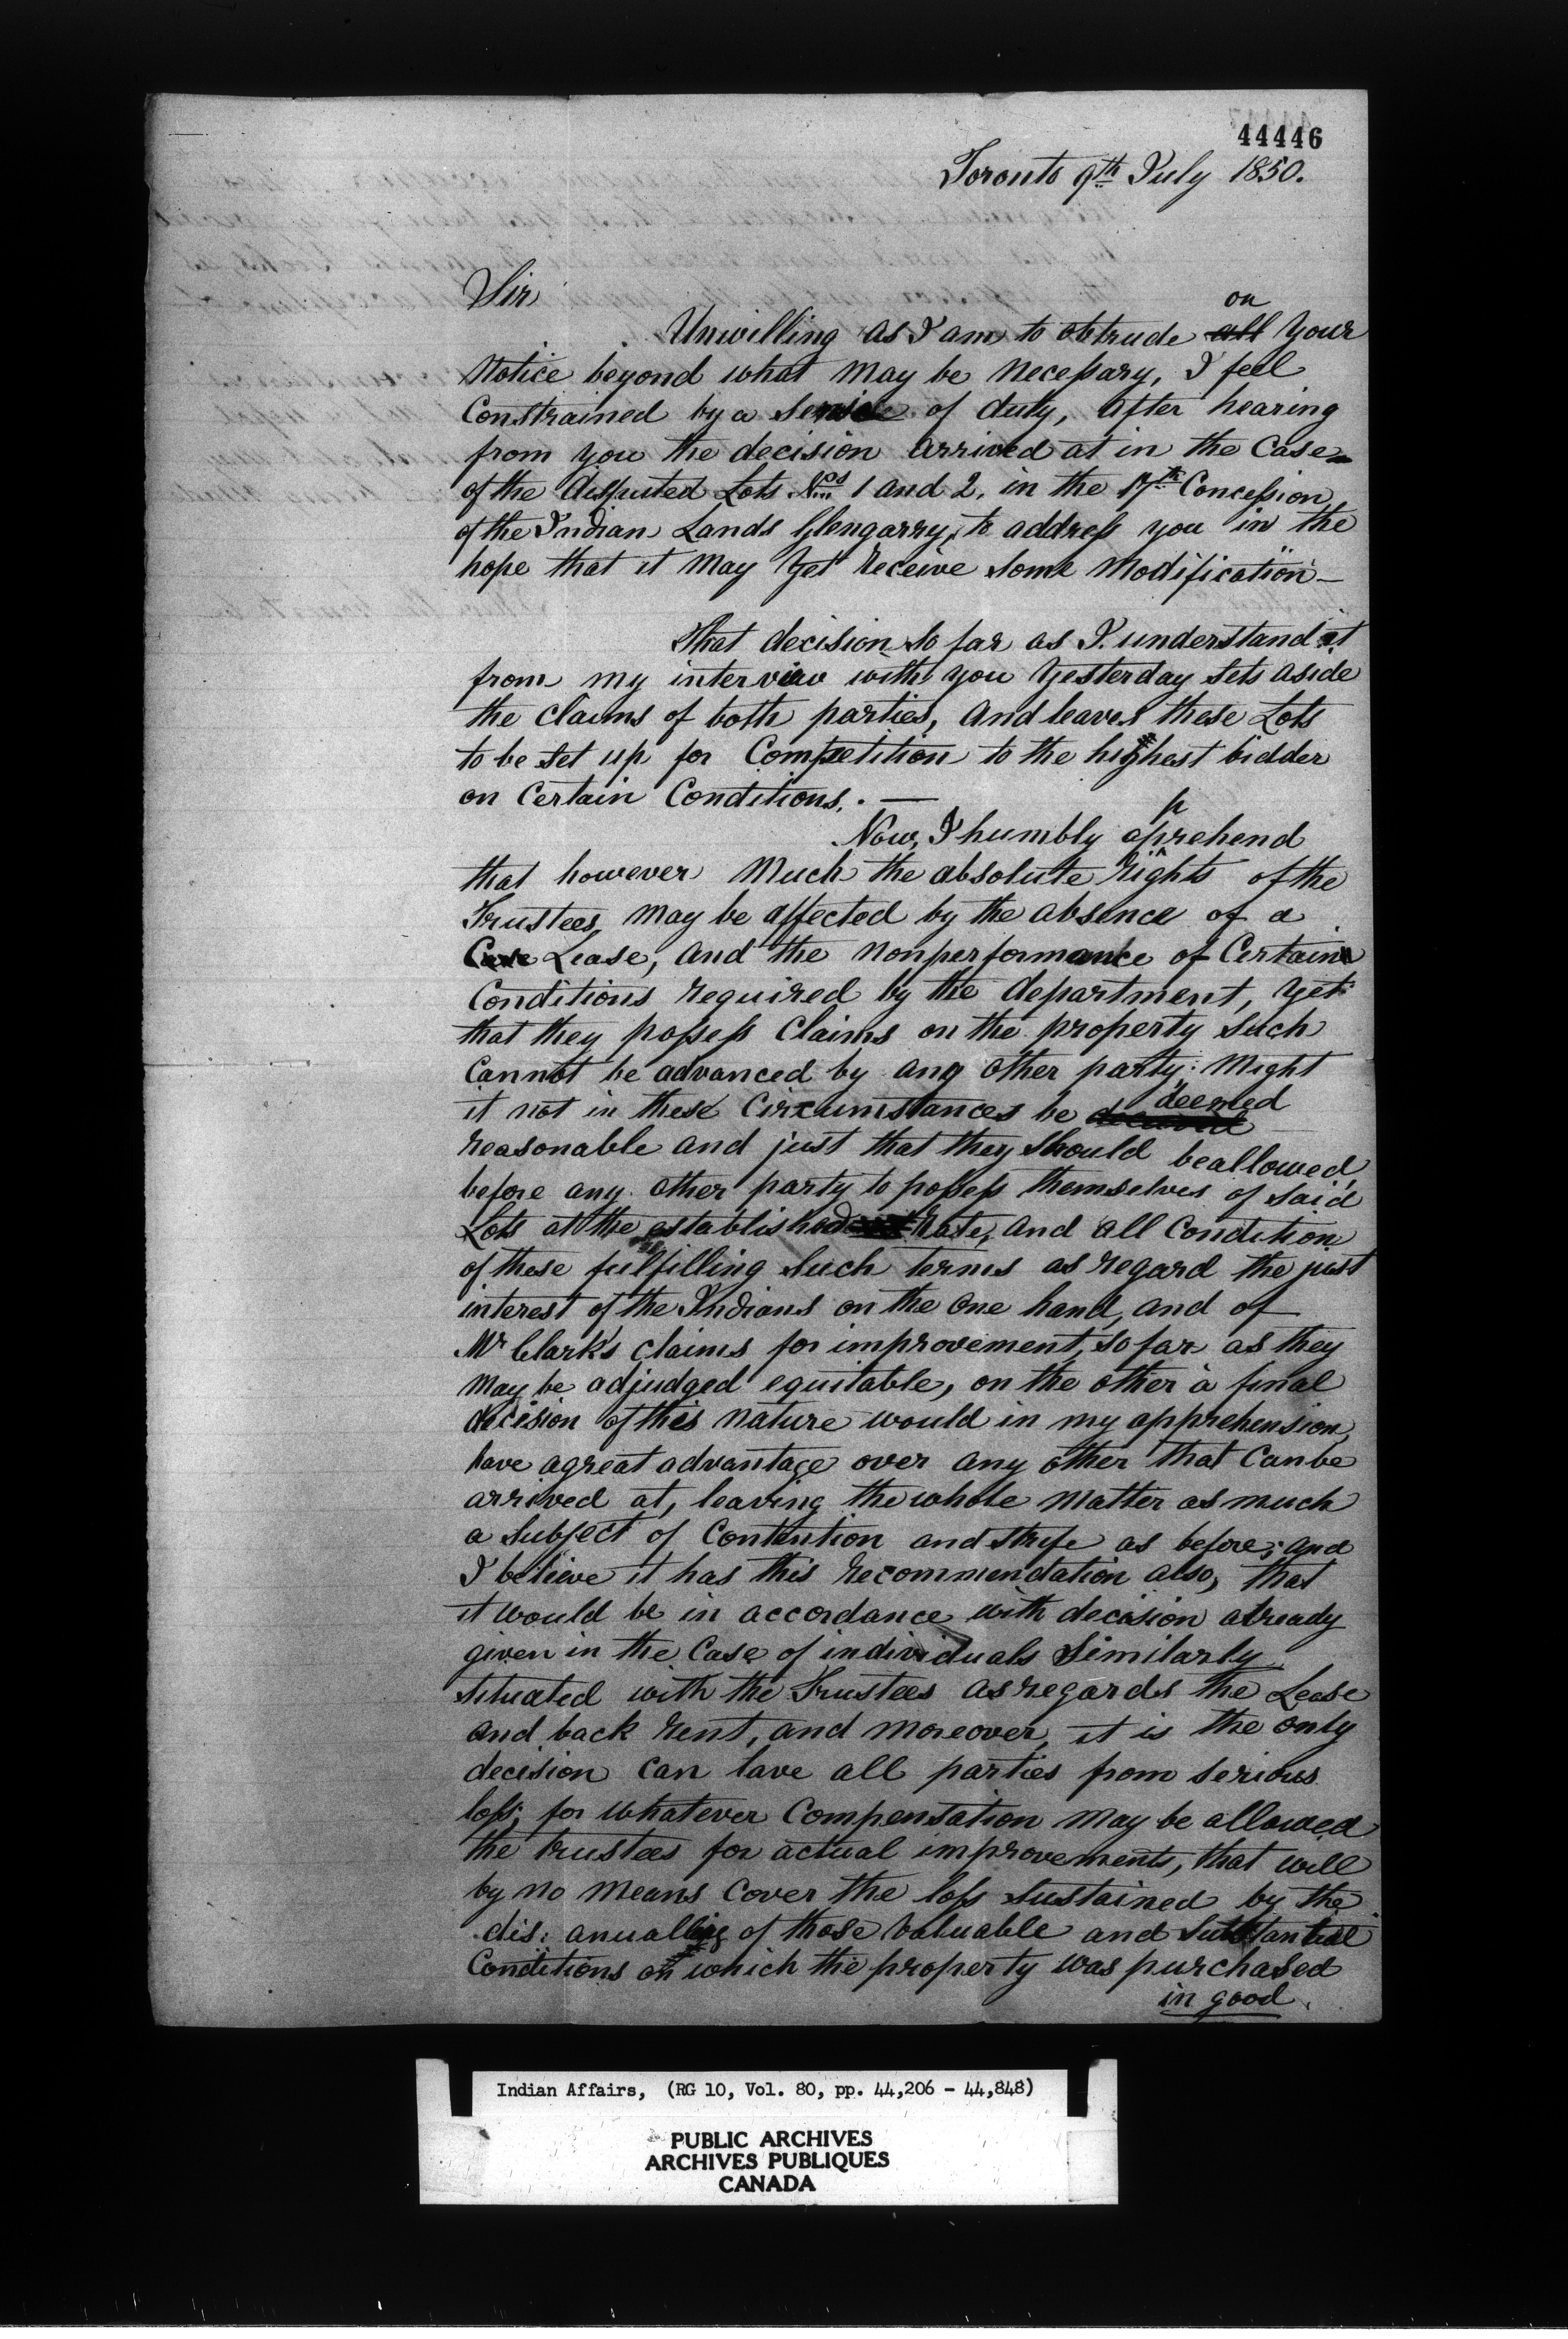 44446
Toronto 9th July 1850.
Sir
on
Unwilling as I am to obtrude all your
Notice beyond what may be necessary, I feel
Constrained by a sense of duty, after hearing
from you the decision arrived at in the Case
of the disputed Lots Nos 1 and 2, in the 17th Concession
of the Indian Lands Glengarry, to address you in the
hope that it may yet receive some modification —
That decision so far as I understand it
from my interview with you yesterday sets aside
the claims of both parties, and leaves these Lots
to be set up for Competition to the highest bidder
on Certain Conditions. —
p
Now, I humbly aprehend
that however much the absolute rights of the
Trustees, may be affected by the absence of a
Lease, and the nonperformance of Certain
Conditions required by the department, yet
that they possess Claims on the property such
Cannot be advanced by any other party: Might
deemed
it not in these Circumstances be
reasonable and just that they should be allowed,
before any other party to possess themselves of said
Lots at the established rate, and all Condition
of these fulfilling such terms as regard the just
interest of the Indians on the one hand, and of
Mr Clark's claims for improvement, so far as they
may be adjudged equitable, on the other à final
decision of this nature would in my apprehension,
have a great advantage over any other that Can be
arrived at, leaving the whole matter as much
a subject of Contention and strife as before; and
I believe it has this recommendation also, that
it would be in accordance with decision already
given in the Case of individuals Similarly
situated with the Trustees as regards the Lease
and back rent, and moreover, it is the only
decision can save all parties from serious
loss, for whatever Compensation may be allowed
the trustees for actual improvements, that will
by no means cover the loss sustained by the
dis: anualling of those valuable and substantial
Conditions on which the property was purchased
in good
Indian Affairs, (RG 10, Vol. 80, pp. 44,206 - 44,848)
PUBLIC ARCHIVES
ARCHIVES PUBLIQUES
CANADA